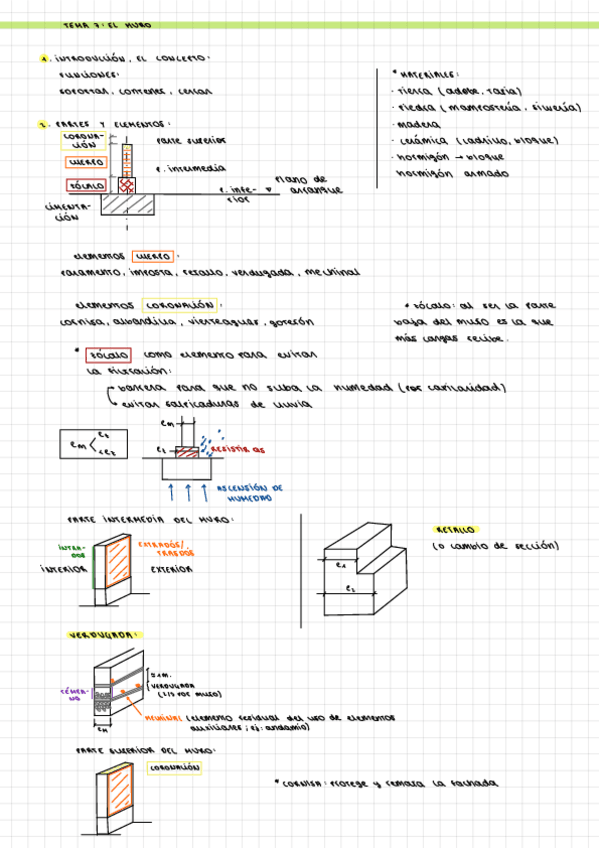 TEMA 7: EL MURO
1. INTRODUCCIÓN, EL CONCEPTO:
FUNCIONES:
SOPORTAR, CONTENER, CERRAR
* MATERIALES:
- TIERRA (ADOBE, TAPIA)
- PIEDRA (MAMPOSTERÍA, SILLERÍA)
- MADERA
- CERÁMICA (LADRILLO, BLOQUE)
- HORMIGÓN → BLOQUE
HORMIGÓN ARMADO
2. PARTES Y ELEMENTOS:
CORONA-
CIÓN
PARTE SUPERIOR
CUERPO
P. INTERMEDIA
ZÓCALO
P. INFE-
RIOR
PLANO DE
ARRANQUE
CIMENTA-
CIÓN
ELEMENTOS CUERPO:
PARAMENTO, IMPOSTA, RETALLO, VERDUGADA, MECHINAL
ELEMENTOS CORONACIÓN:
CORNISA, ALBARDILLA, VIERTEAGUAS, GOTERÓN
* ZÓCALO: AL SER LA PARTE
BAJA DEL MURO ES LA QUE
MÁS CARGAS RECIBE.
* ZÓCALO COMO ELEMENTO PARA EVITAR
LA FILTRACIÓN:
BARRERA PARA QUE NO SUBA LA HUMEDAD (POR CAPILARIDAD)
EVITAR SALPICADURAS DE LLUVIA
em < ez
<ez
em
ez
RESISTIR AS
ASCENSIÓN DE
HUMEDAD
PARTE INTERMEDIA DEL MURO:
INTRA-
DÓS
EXTRADÓS/
TRASDÓS
INTERIOR
EXTERIOR
RETALLO
(O CAMBIO DE SECCIÓN)
e1
e2
VERDUGADA:
≥1M.
VERDUGADA
(1/3 POR MURO)
TÉMPA-
NO
MECHINAL (ELEMENTO RESIDUAL DEL USO DE ELEMENTOS
AUXILIARES; EJ: ANDAMIO)
eM
PARTE SUPERIOR DEL MURO:
CORONACIÓN
* CORNISA: PROTEGE Y REMATA LA FACHADA